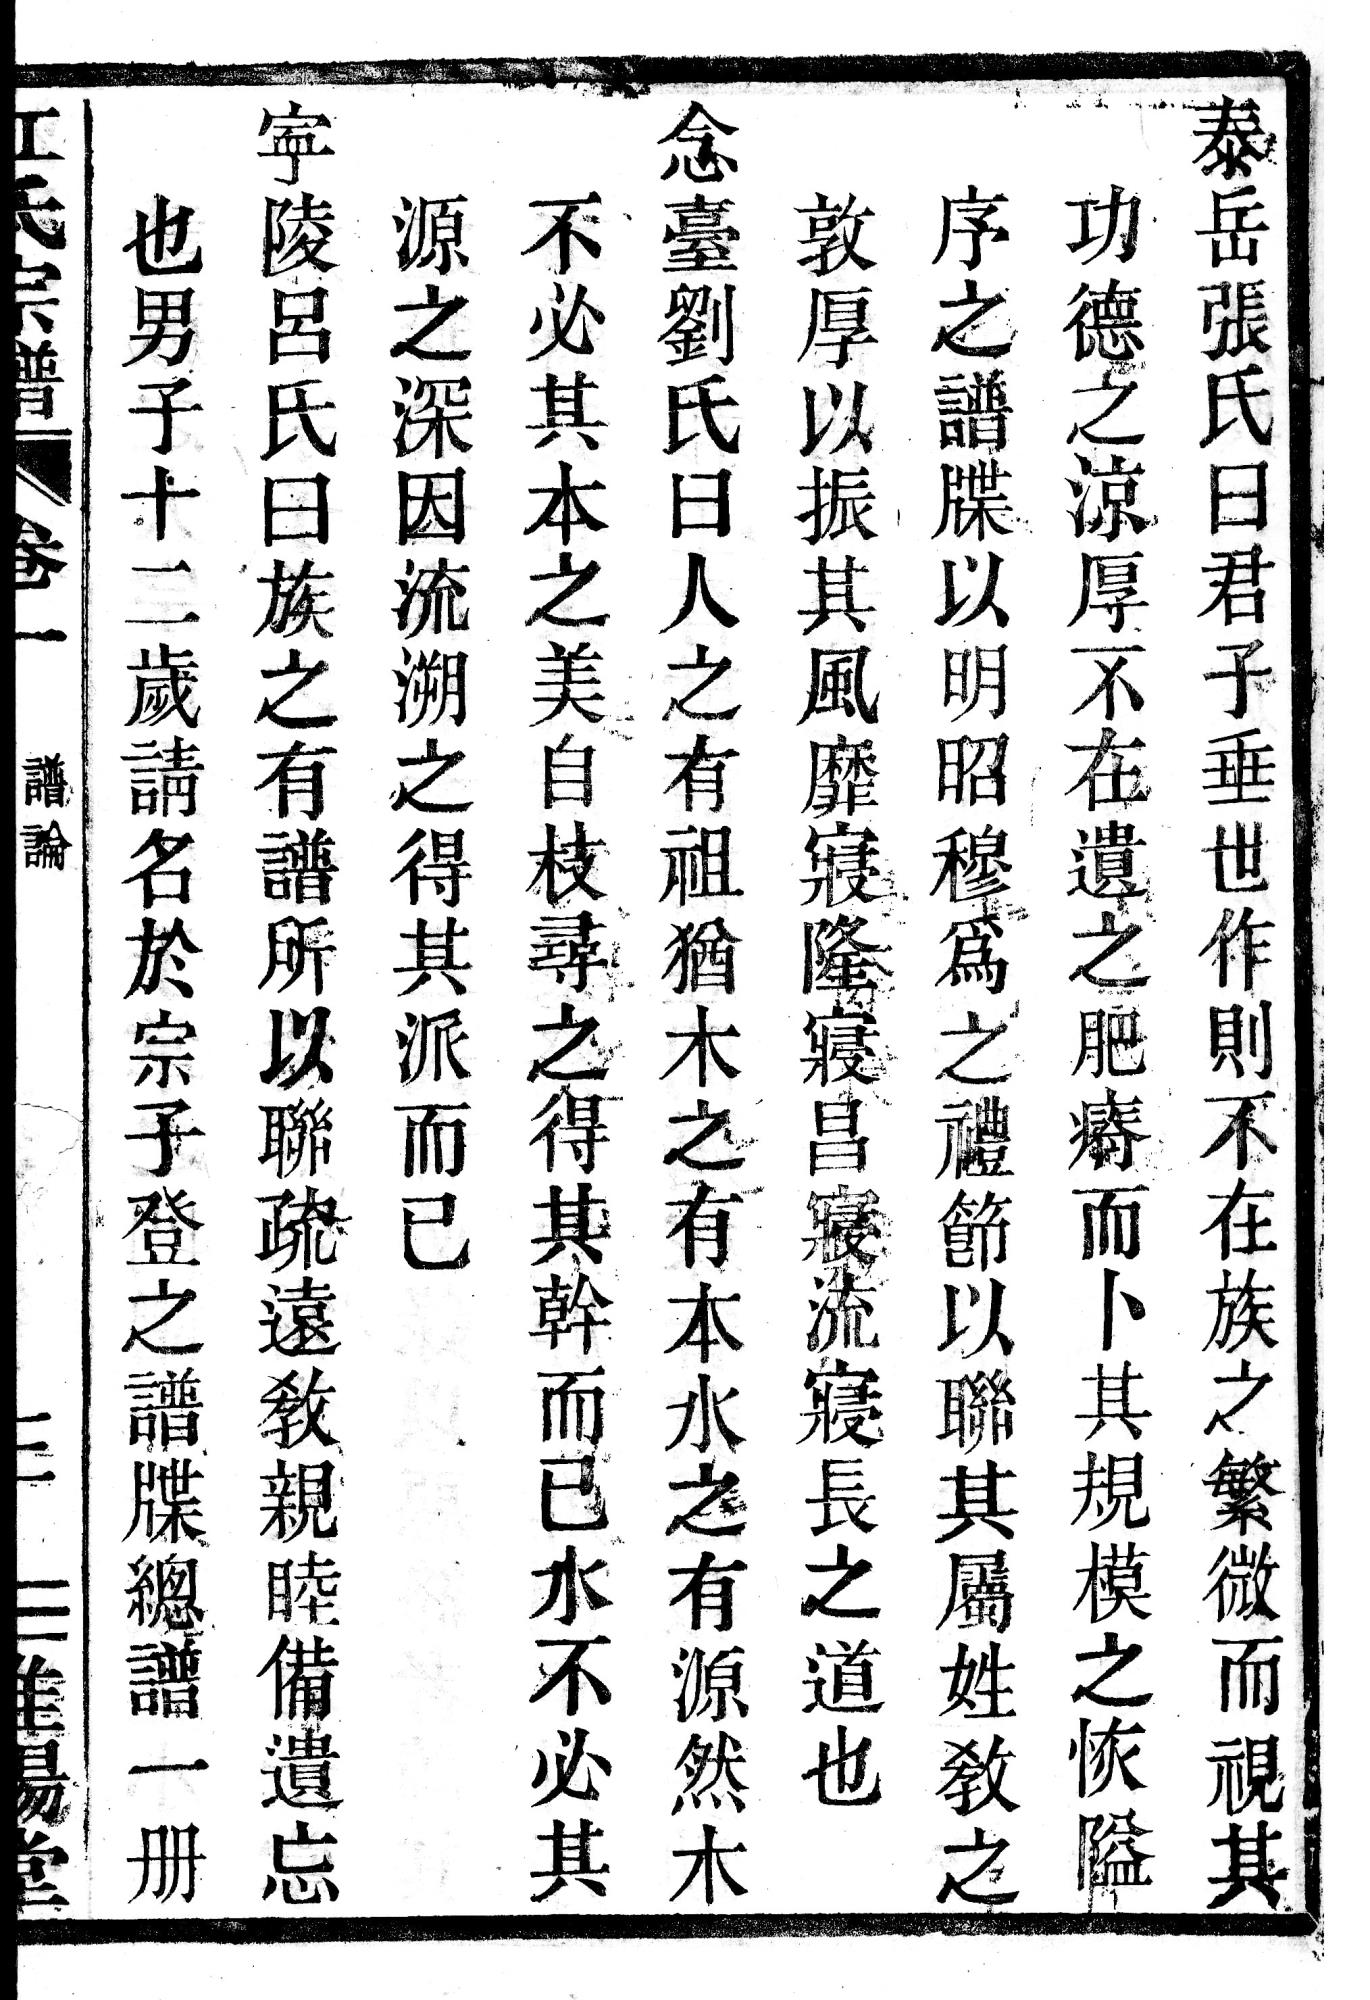 泰岳張氏曰君子垂世作則不在族之繁微而視其
功德之涼厚不在遺之肥瘠而卜其規模之恢隘
序之譜牒以明昭穆爲之禮節以聯其屬姓教之
敦厚以振其風靡寖隆寖昌寖流寖長之道也
念臺劉氏曰人之有祖猶木之有本水之有源然木
不必其本之美自枝尋之得其幹而已水不必其
源之深因流溯之得其派而已
寧陵呂氏曰族之有譜所以聯疏遠教親睦備遺忘
也男子十二歲請名於宗子登之譜牒總譜一册
江氏宗譜 卷一 譜論 三 淮陽堂